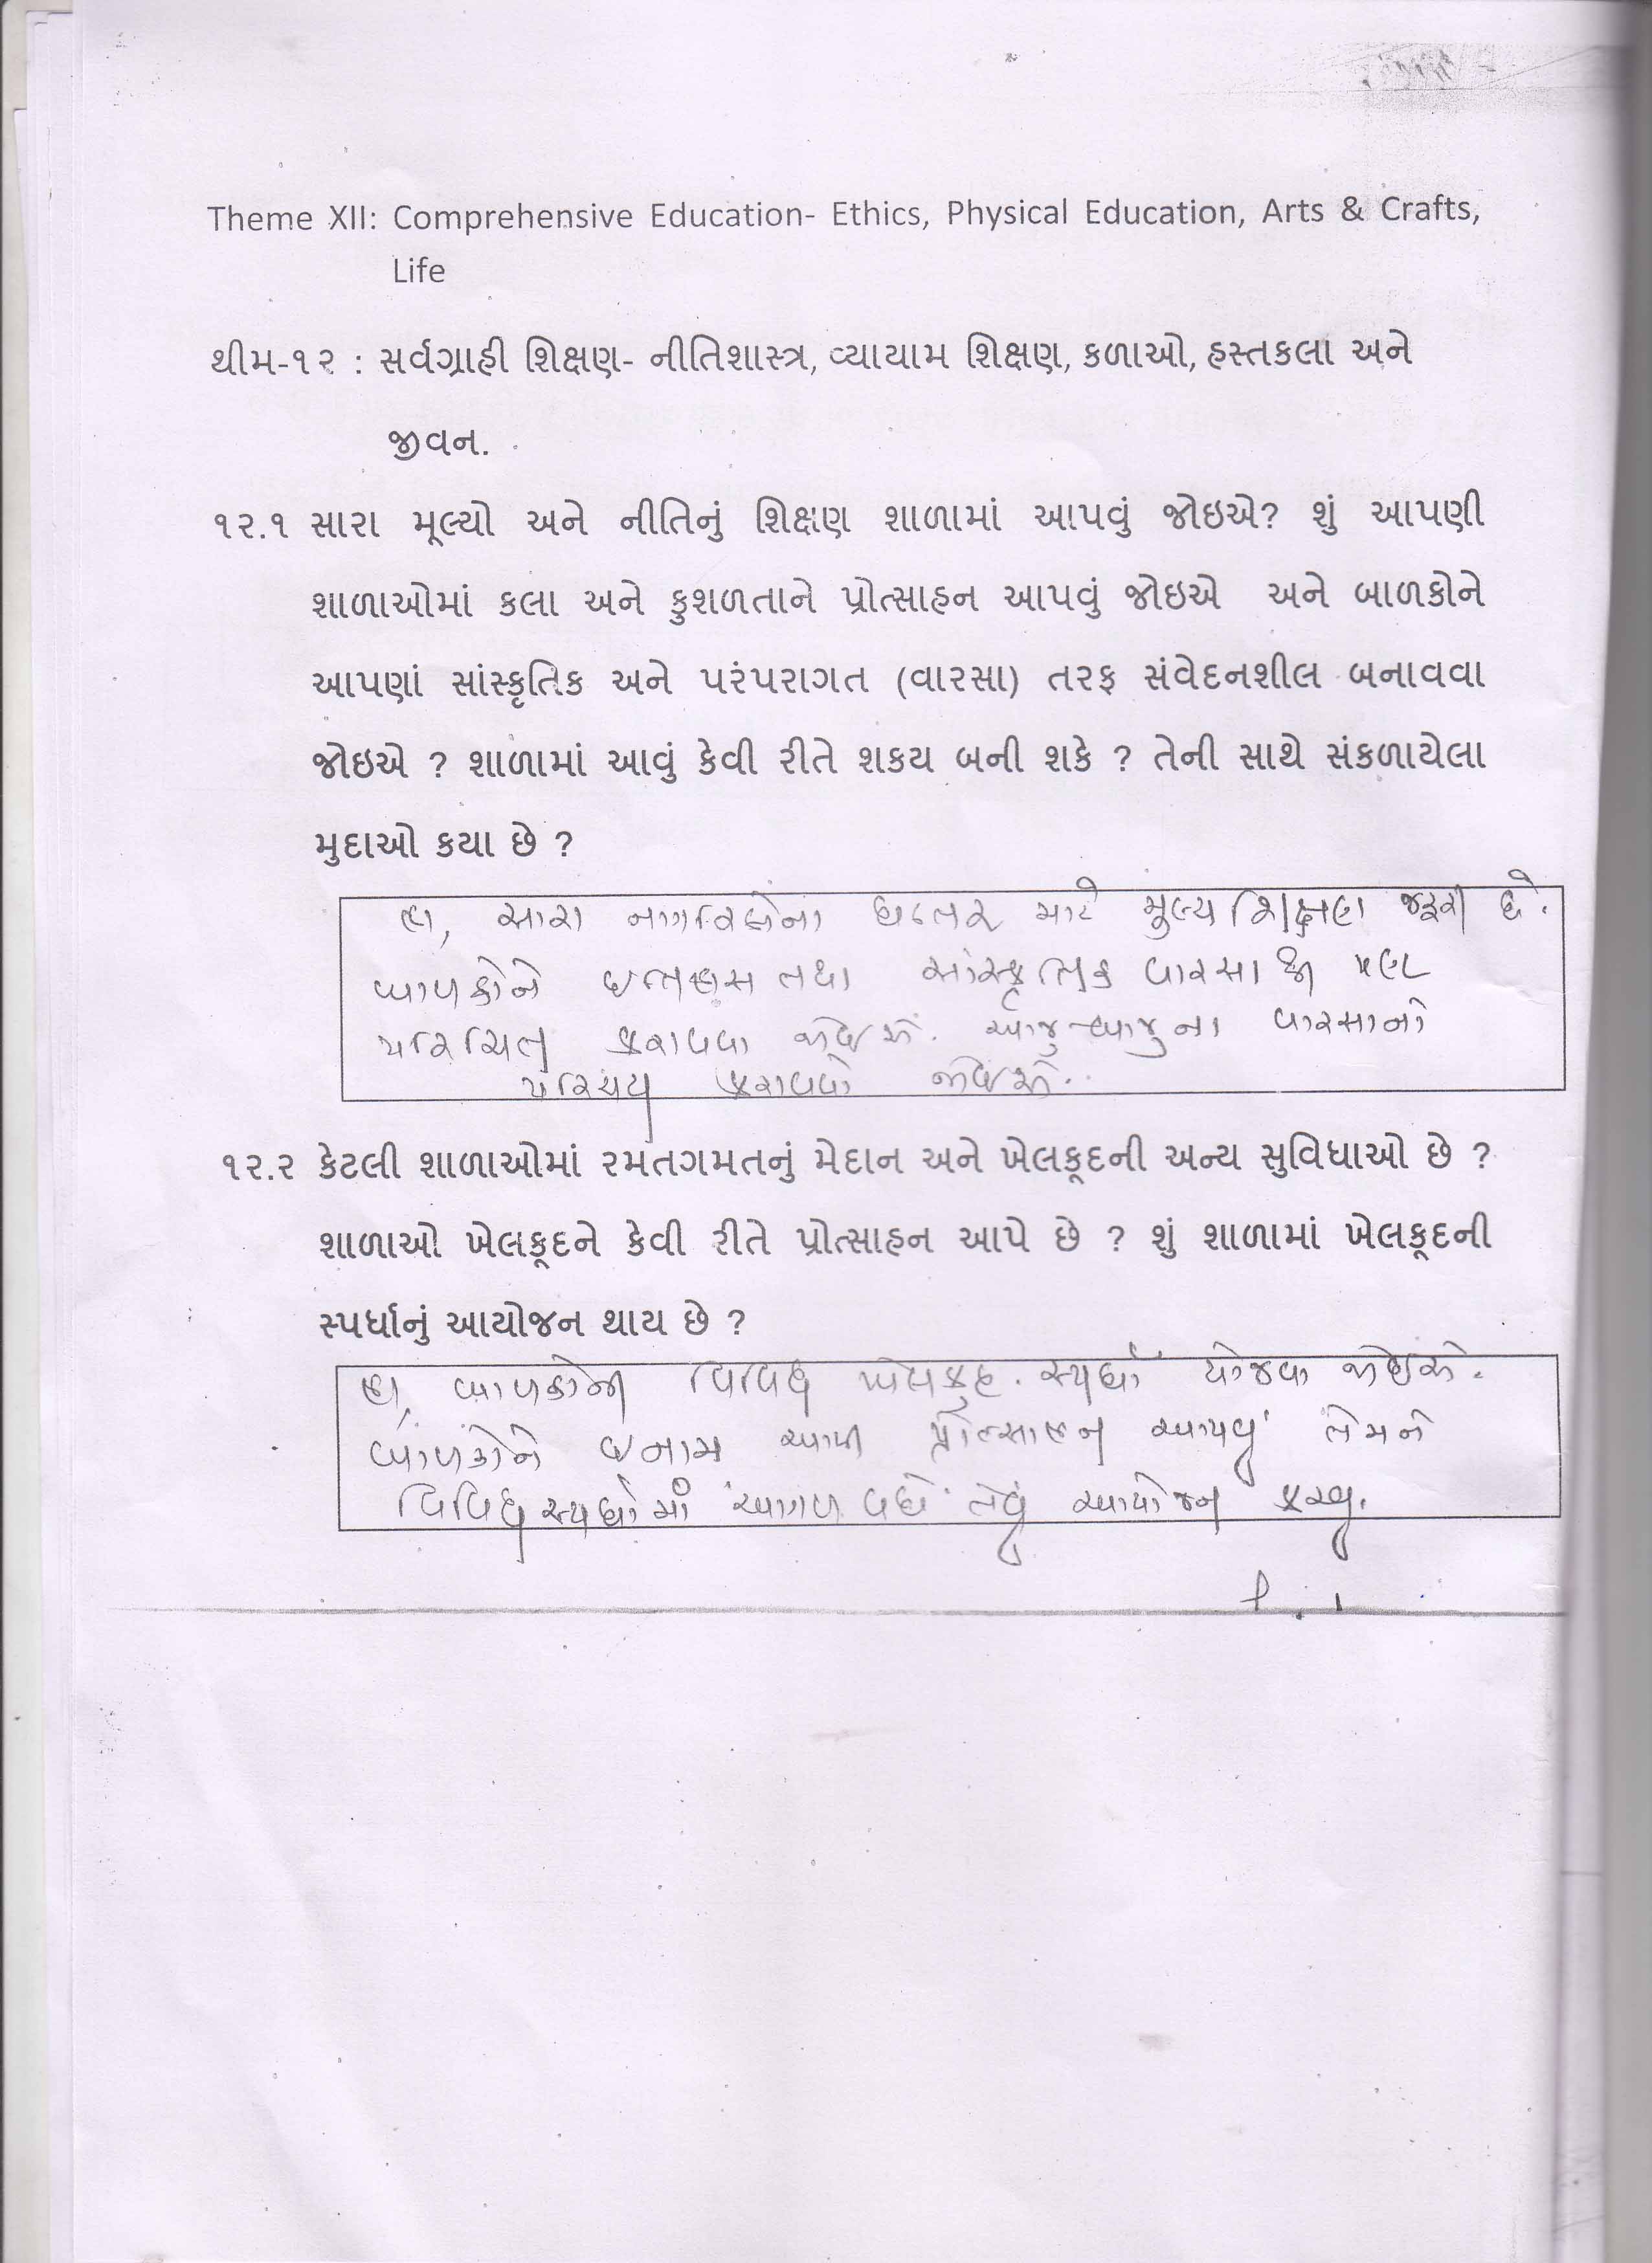 Theme XII: Comprehensive Education- Ethics, Physical Education, Arts & Crafts,
Life
થીમ-૧૨ : સર્વગ્રાહી શિક્ષણ- નીતિશાસ્ત્ર, વ્યાયામ શિક્ષણ, કળાઓ, હસ્તકલા અને
જીવન.
૧૨.૧ સારા મૂલ્યો અને નીતિનું શિક્ષણ શાળામાં આપવું જોઇએ? શું આપણી
શાળાઓમાં કલા અને કુશળતાને પ્રોત્સાહન આપવું જોઇએ અને બાળકોને
આપણાં સાંસ્કૃતિક અને પરંપરાગત (વારસા) તરફ સંવેદનશીલ બનાવવા
જોઇએ ? શાળામાં આવું કેવી રીતે શકય બની શકે ? તેની સાથે સંકળાયેલા
મુદાઓ કયા છે ?
હા, સારા નાગરિકોના ઘડતર માટે મુલ્ય શિક્ષણ જરૂરી છે.
બાળકોને ઇતિહાસ તથા સાંસ્કૃતિક વારસાથી પણ
પરિચિત કરાવવા જોઇએ. આજુ-બાજુના વારસાનો
પરિચય કરાવવો જોઇએ.
૧૨.૨ કેટલી શાળાઓમાં રમતગમતનું મેદાન અને ખેલકૂદની અન્ય સુવિધાઓ છે ?
શાળાઓ ખેલકૂદને કેવી રીતે પ્રોત્સાહન આપે છે ? શું શાળામાં ખેલકૂદની
સ્પર્ધાનું આયોજન થાય છે ?
હા, બાળકોની વિવિધ ખેલકુદ સ્પર્ધા યોજવા જોઇએ.
બાળકોને ઇનામ આપી પ્રોત્સાહન આપવું તેમને
વિવિધ સ્પર્ધામાં આગળ વધે તેવું આયોજન કરવુ.